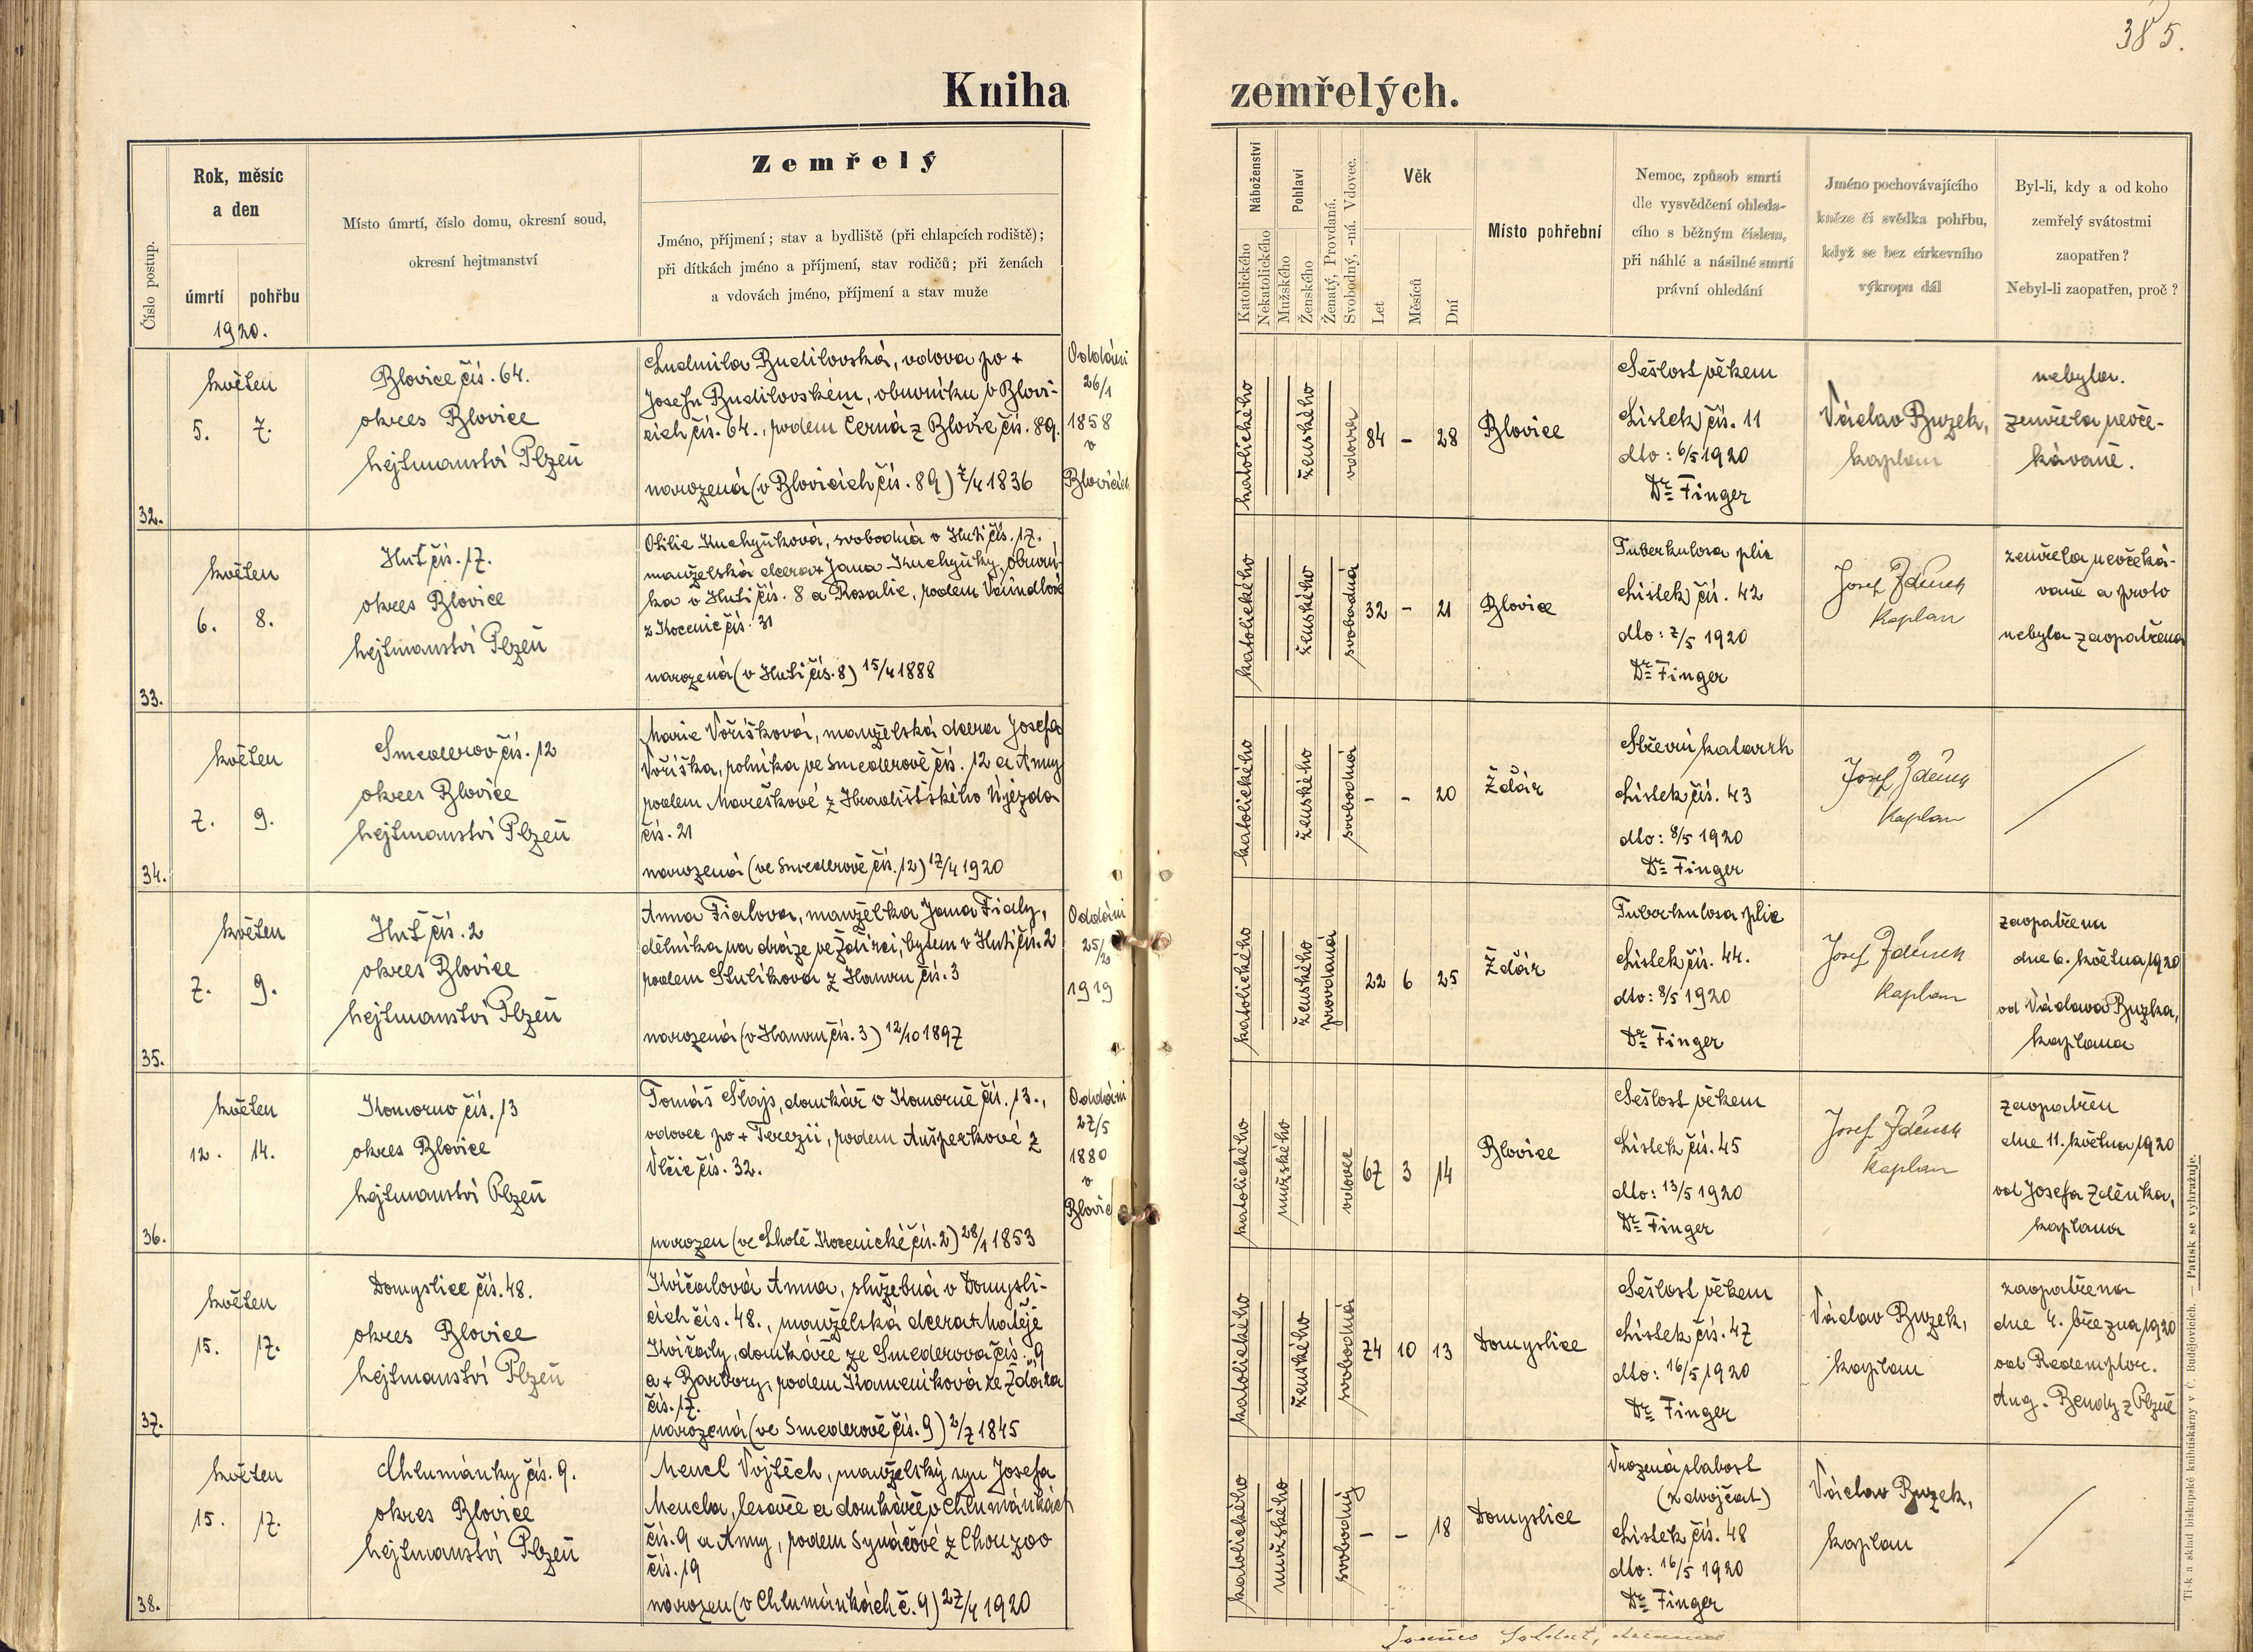 385.
Kniha zemřelých.
Číslo postup.
Rok, měsíc
a den
úmrtí pohřbu
1920.
Místo úmrtí, číslo domu, okresní soud,
okresní hejtmanství
Zemřelý
Jméno, příjmení; stav a bydliště (při chlapcích rodiště);
při dítkách jméno a příjmení, stav rodičů; při ženách
a vdovách jméno, příjmení a stav muže
Náboženství
Katolického
Nekatolického
Pohlaví
Mužského
Ženského
Ženatý, Provdaná.
Svobodný, -ná. Vdovec.
Věk
Let
Měsíců
Dní
Místo pohřební
Nemoc, způsob smrti
dle vysvědčení ohleda-
cího s běžným číslem,
při náhlé a násilné smrti
právní ohledání
Jméno pochovávajícího
kněze či svědka pohřbu,
když se bez církevního
výkropu dál
Byl-li, kdy a od koho
zemřelý svátostmi
zaopatřen?
Nebyl-li zaopatřen, proč?
32.
květen
5. 7.
Blovice čís. 64.
okres Blovice
hejtmanství Plzeň
Ludmila Budilovská, vdova po +
Josefu Budilovském, obuvníku v Blovi-
cích čís. 64., rodem Černá z Blovic čís. 89.
narozená (v Blovicích čís. 89) 7/4 1836
Oddáni
26/1
1858
v
Blovicích
katolického
ženského
vdova
84 - 28
Blovice
Sešlost věkem
Lístek čís. 11
dto: 6/5 1920
Dr. Finger
Václav Buzek,
kaplan
nebyla.
zemřela neoče-
kávaně.
33.
květen
6. 8.
Huť čís. 17.
okres Blovice
hejtmanství Plzeň
Otilie Kuchyňková, svobodná v Huti čís. 17.
manželská dcera + Jana Kuchyňky, obuvní-
ka v Huti čís. 8 a Rosalie, rodem
z Kocenic čís. 31
narozená (v Huti čís. 8) 15/4 1888
katolického
ženského
svobodná
32 - 21
Blovice
Tuberkulosa plic
Lístek čís. 42
dto: 7/5 1920
Dr. Finger
Josef Zděnek
kaplan
zemřela neočeká-
vaně a proto
nebyla zaopatřena
34.
květen
7. 9.
Smederov čís. 12
okres Blovice
hejtmanství Plzeň
Marie Voříšková, manželská dcera Josefa
Voříška, rolníka ve Smederově čís. 12 a Anny
rodem Mareškové z Hradišťského Újezda
čís. 21
narozená (ve Smederově čís. 12) 17/4 1920
katolického
ženského
svobodná
- - 20
Ždár
Střevní katarrh
Lístek čís. 43
dto: 8/5 1920
Dr. Finger
Josef Zděnek
kaplan
35.
květen
7. 9.
Huť čís. 2
okres Blovice
hejtmanství Plzeň
Anna Fialova, manželka Jana Fialy,
dělníka na dráze ve Ždírci, bytem v Huti čís. 2
rodem Stulíkova z Hamru čís. 3
narozená (v Hamru čís. 3) 12/10 1897
Oddáni
25/2
1919
katolického
ženského
provdaná
22 6 25
Ždár
Tuberkulosa plic
Lístek čís. 44.
dto: 8/5 1920
Dr. Finger
Josef Zděnek
kaplan
zaopatřena
dne 6. května 1920
od Václava Buzka,
kaplana
36.
květen
12. 14.
Komorno čís. 13
okres Blovice
hejtmanství Plzeň
Tomáš Šlajs, domkář v Komorně čís. 13.,
vdovec po + Terezii, rodem Aušperkové z
Vlčic čís. 32.
narozen (ve Lhotě Kocenické čís. 2) 28/1 1853
Oddáni
27/5
1880
v
Blovic
katolického
mužského
vdovec
67 3 14
Blovice
Sešlost věkem
Lístek čís. 45
dto: 13/5 1920
Dr. Finger
Josef Zděnek
kaplan
zaopatřen
dne 11. května 1920
od Josefa Zděnka,
kaplana
37.
květen
15. 17.
Domyslice čís. 48.
okres Blovice
hejtmanství Plzeň
Kvíčalová Anna, služebná v Domysli-
cích čís. 48., manželská dcera + Matěje
Kvíčaly, domkáře ze Smederova čís. 9
a + Barbory, rodem Kameníkova ze Ždára
čís. 17.
narozená (ve Smederově čís. 9) 2/7 1845
katolického
ženského
svobodná
74 10 13
Domyslice
Sešlost věkem
Lístek čís. 47
dto: 16/5 1920
Dr. Finger
Václav Buzek,
kaplan
zaopatřena
dne 4. března 1920
od Redemptor.
Aug. Bendy z Plzně
38.
květen
15. 17.
Chlumánky čís. 9.
okres Blovice
hejtmanství Plzeň
Mencl Vojtěch, manželský syn Josefa
Mencla, tesaře a domkáře v Chlumánkách
čís. 9 a Anny, rodem Synáčové z Chouzov
čís. 19
narozen (v Chlumánkách č. 9) 27/4 1920
katolického
mužského
svobodný
- - 18
Domyslice
Vrozená slabost
(z dvojčat)
Lístek čís. 48
dto: 16/5 1920
Dr. Finger
Václav Buzek,
kaplan
Tisk a sklad biskupské knihtiskárny v Č. Budějovicích. — Patisk se vyhražuje.